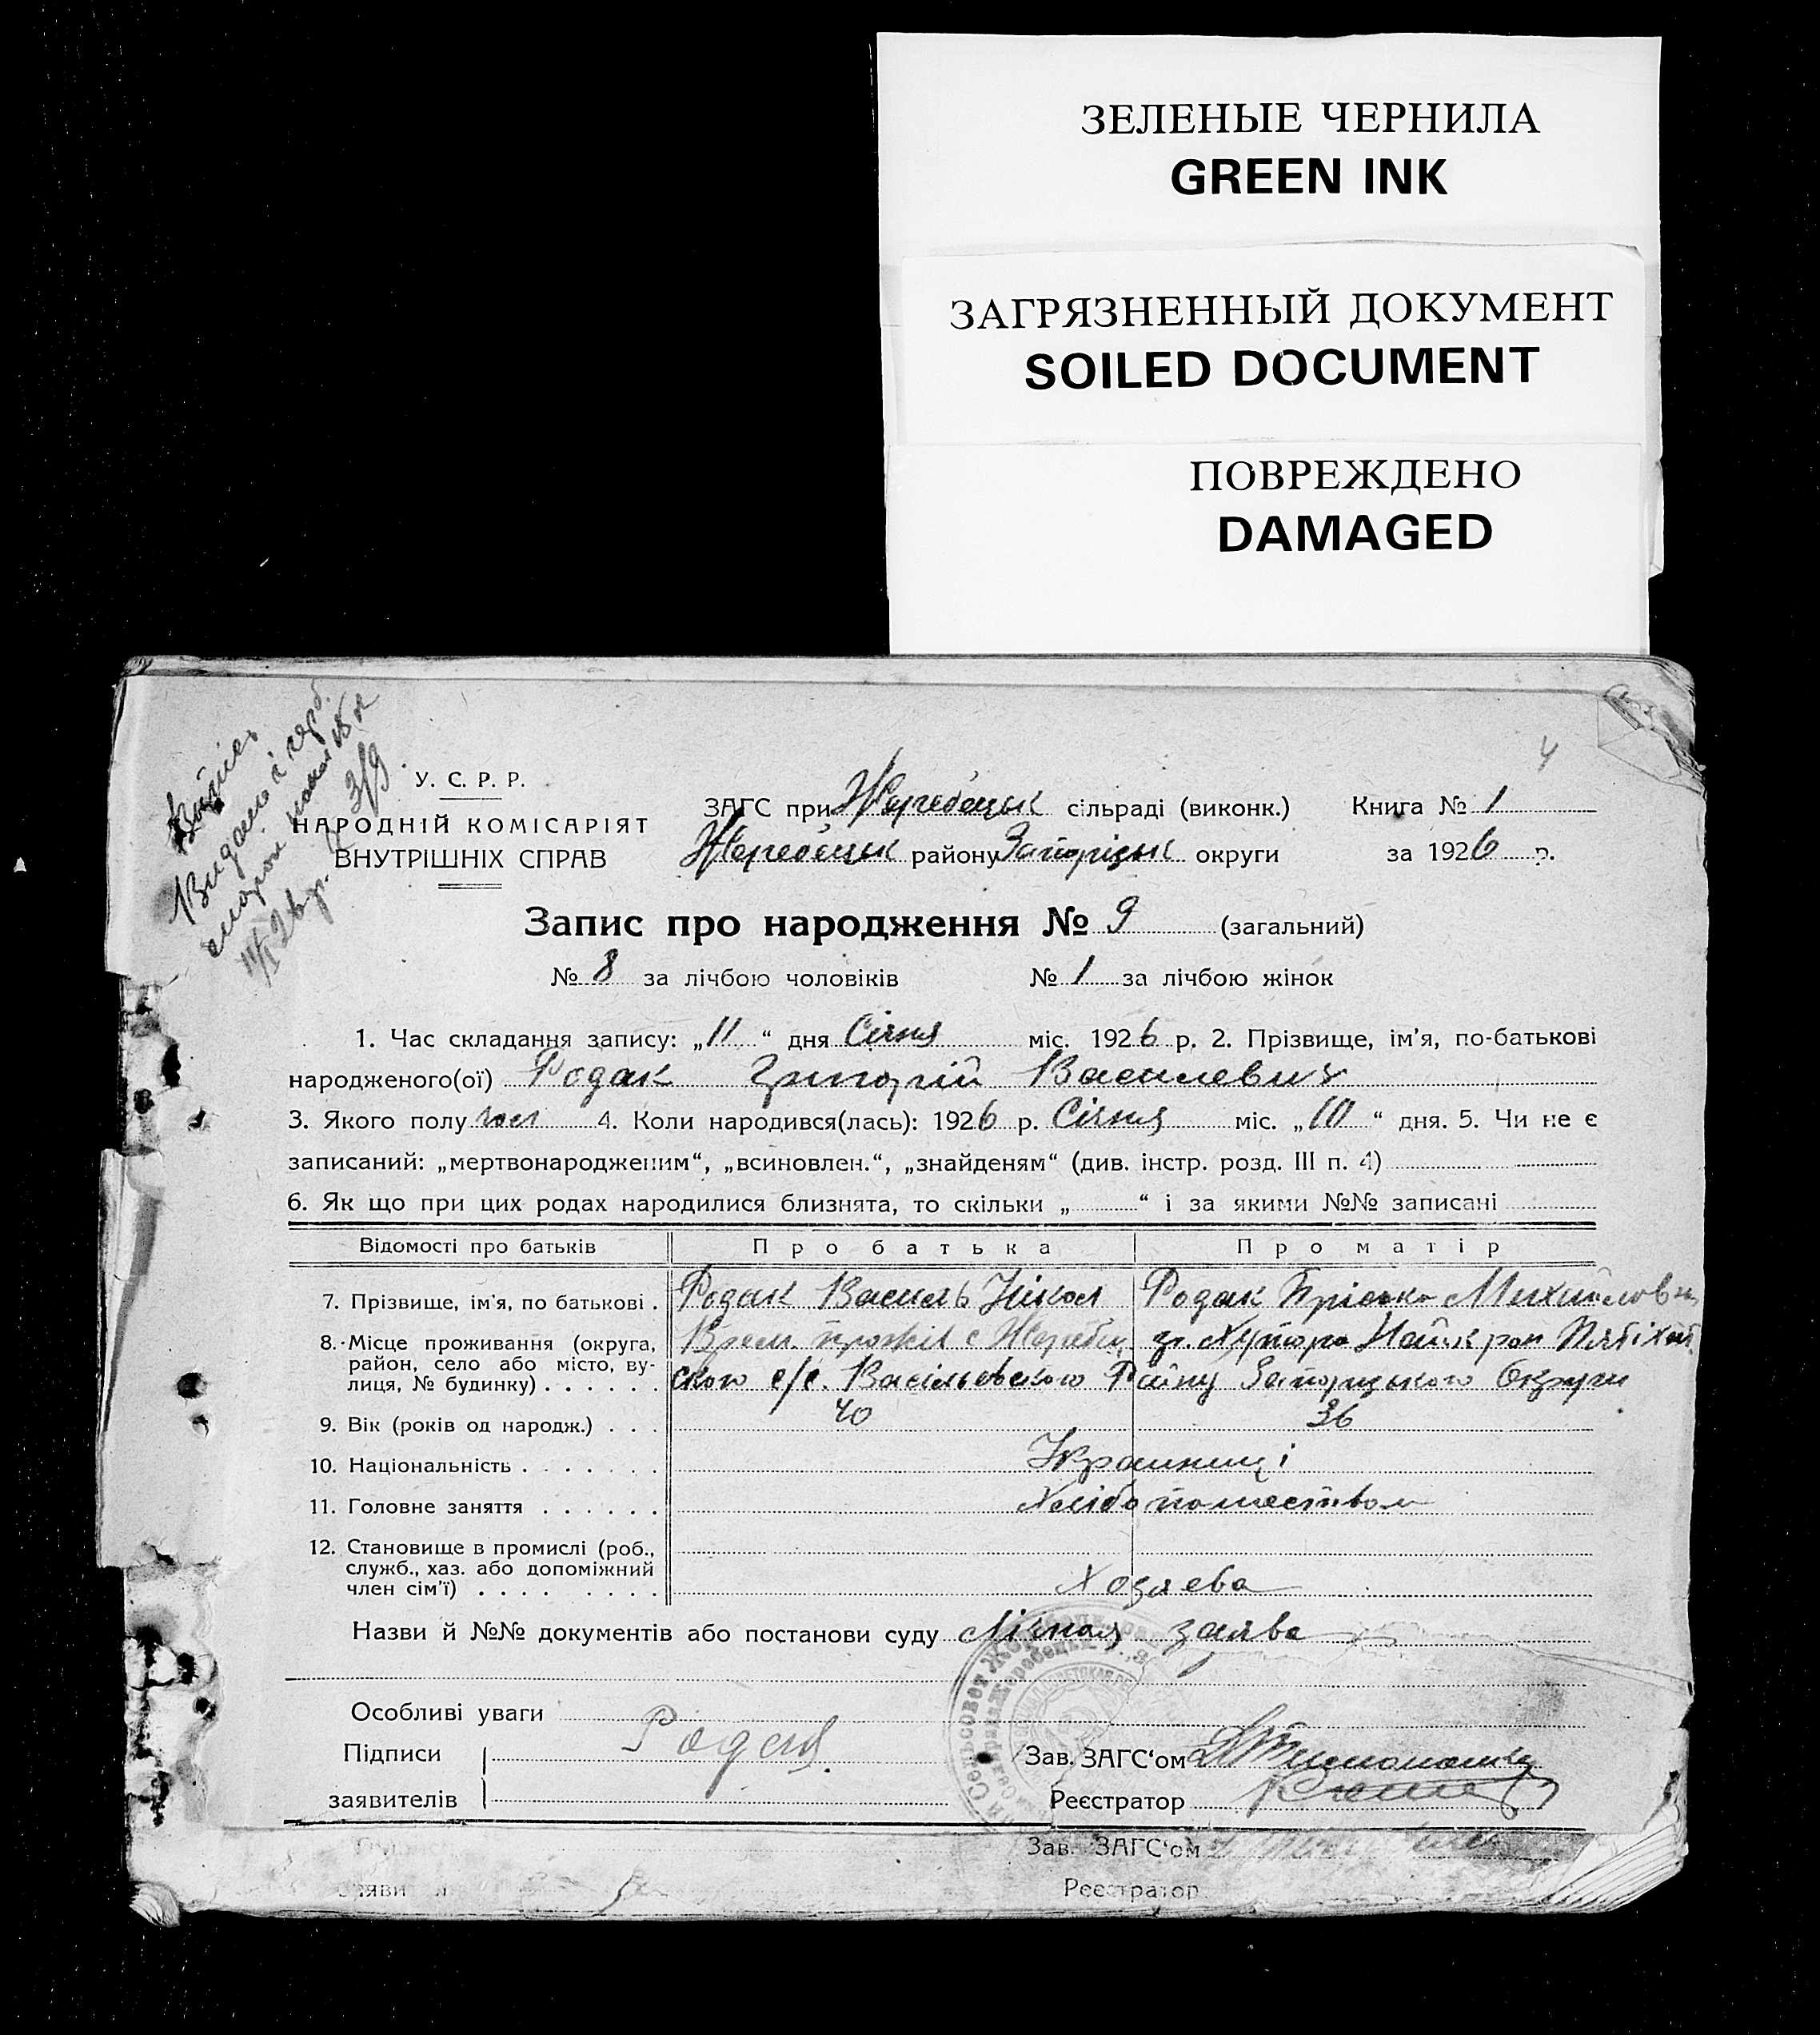 ЗЕЛЕНЫЕ ЧЕРНИЛА
GREEN INK
ЗАГРЯЗНЕННЫЙ ДОКУМЕНТ
SOILED DOCUMENT
ПОВРЕЖДЕНО
DAMAGED
4
У. С. Р. Р.
НАРОДНІЙ КОМІСАРІЯТ
ВНУТРІШНІХ СПРАВ
ЗАГС при Жеребецьк сільраді (виконк.) Книга № 1
Жеребецьк району Запорізьк округи за 1926 р.
Запис про народження № 9 (загальний)
№ 8 за лічбою чоловіків № 1 за лічбою жінок
1. Час складання запису: „11“ дня Січня міс. 1926 р. 2. Прізвище, ім'я, по-батькові
народженого(ої) Родак Григорій Василевич
3. Якого полу чол 4. Коли народився(лась): 1926 р. Січня міс. „10“ дня. 5. Чи не є
записаний: „мертвонародженим“, „всиновлен.“, „знайденям“ (див. інстр. розд. III п. 4)
6. Як що при цих родах народилися близнята, то скільки „ “ і за якими №№ записані
Відомості про батьків Про батька Про матір
7. Прізвище, ім'я, по батькові . Родак Василь Нікол Родак Пріська Михайловна
8. Місце проживання (округа, район, село або місто, вулиця, № будинку) . . . . . .
Врем. прожів с Жеребец
ского с/с. Васільевского Району Запоріцького Округи
9. Вік (років од народж.) . . . 40 36
10. Національність . . . . . . . Украинці
11. Головне заняття . . . . . . Хлібопашество
12. Становище в промислі (роб.,
служб., хаз. або допоміжний
член сім'ї) . . . . . . . . Хозяева
Назви й №№ документів або постанови суду Лічная заява
Особливі уваги
Підписи Родак Зав. ЗАГС'ом
заявителів Реєстратор
Зав. ЗАГС'ом
Реєстратор